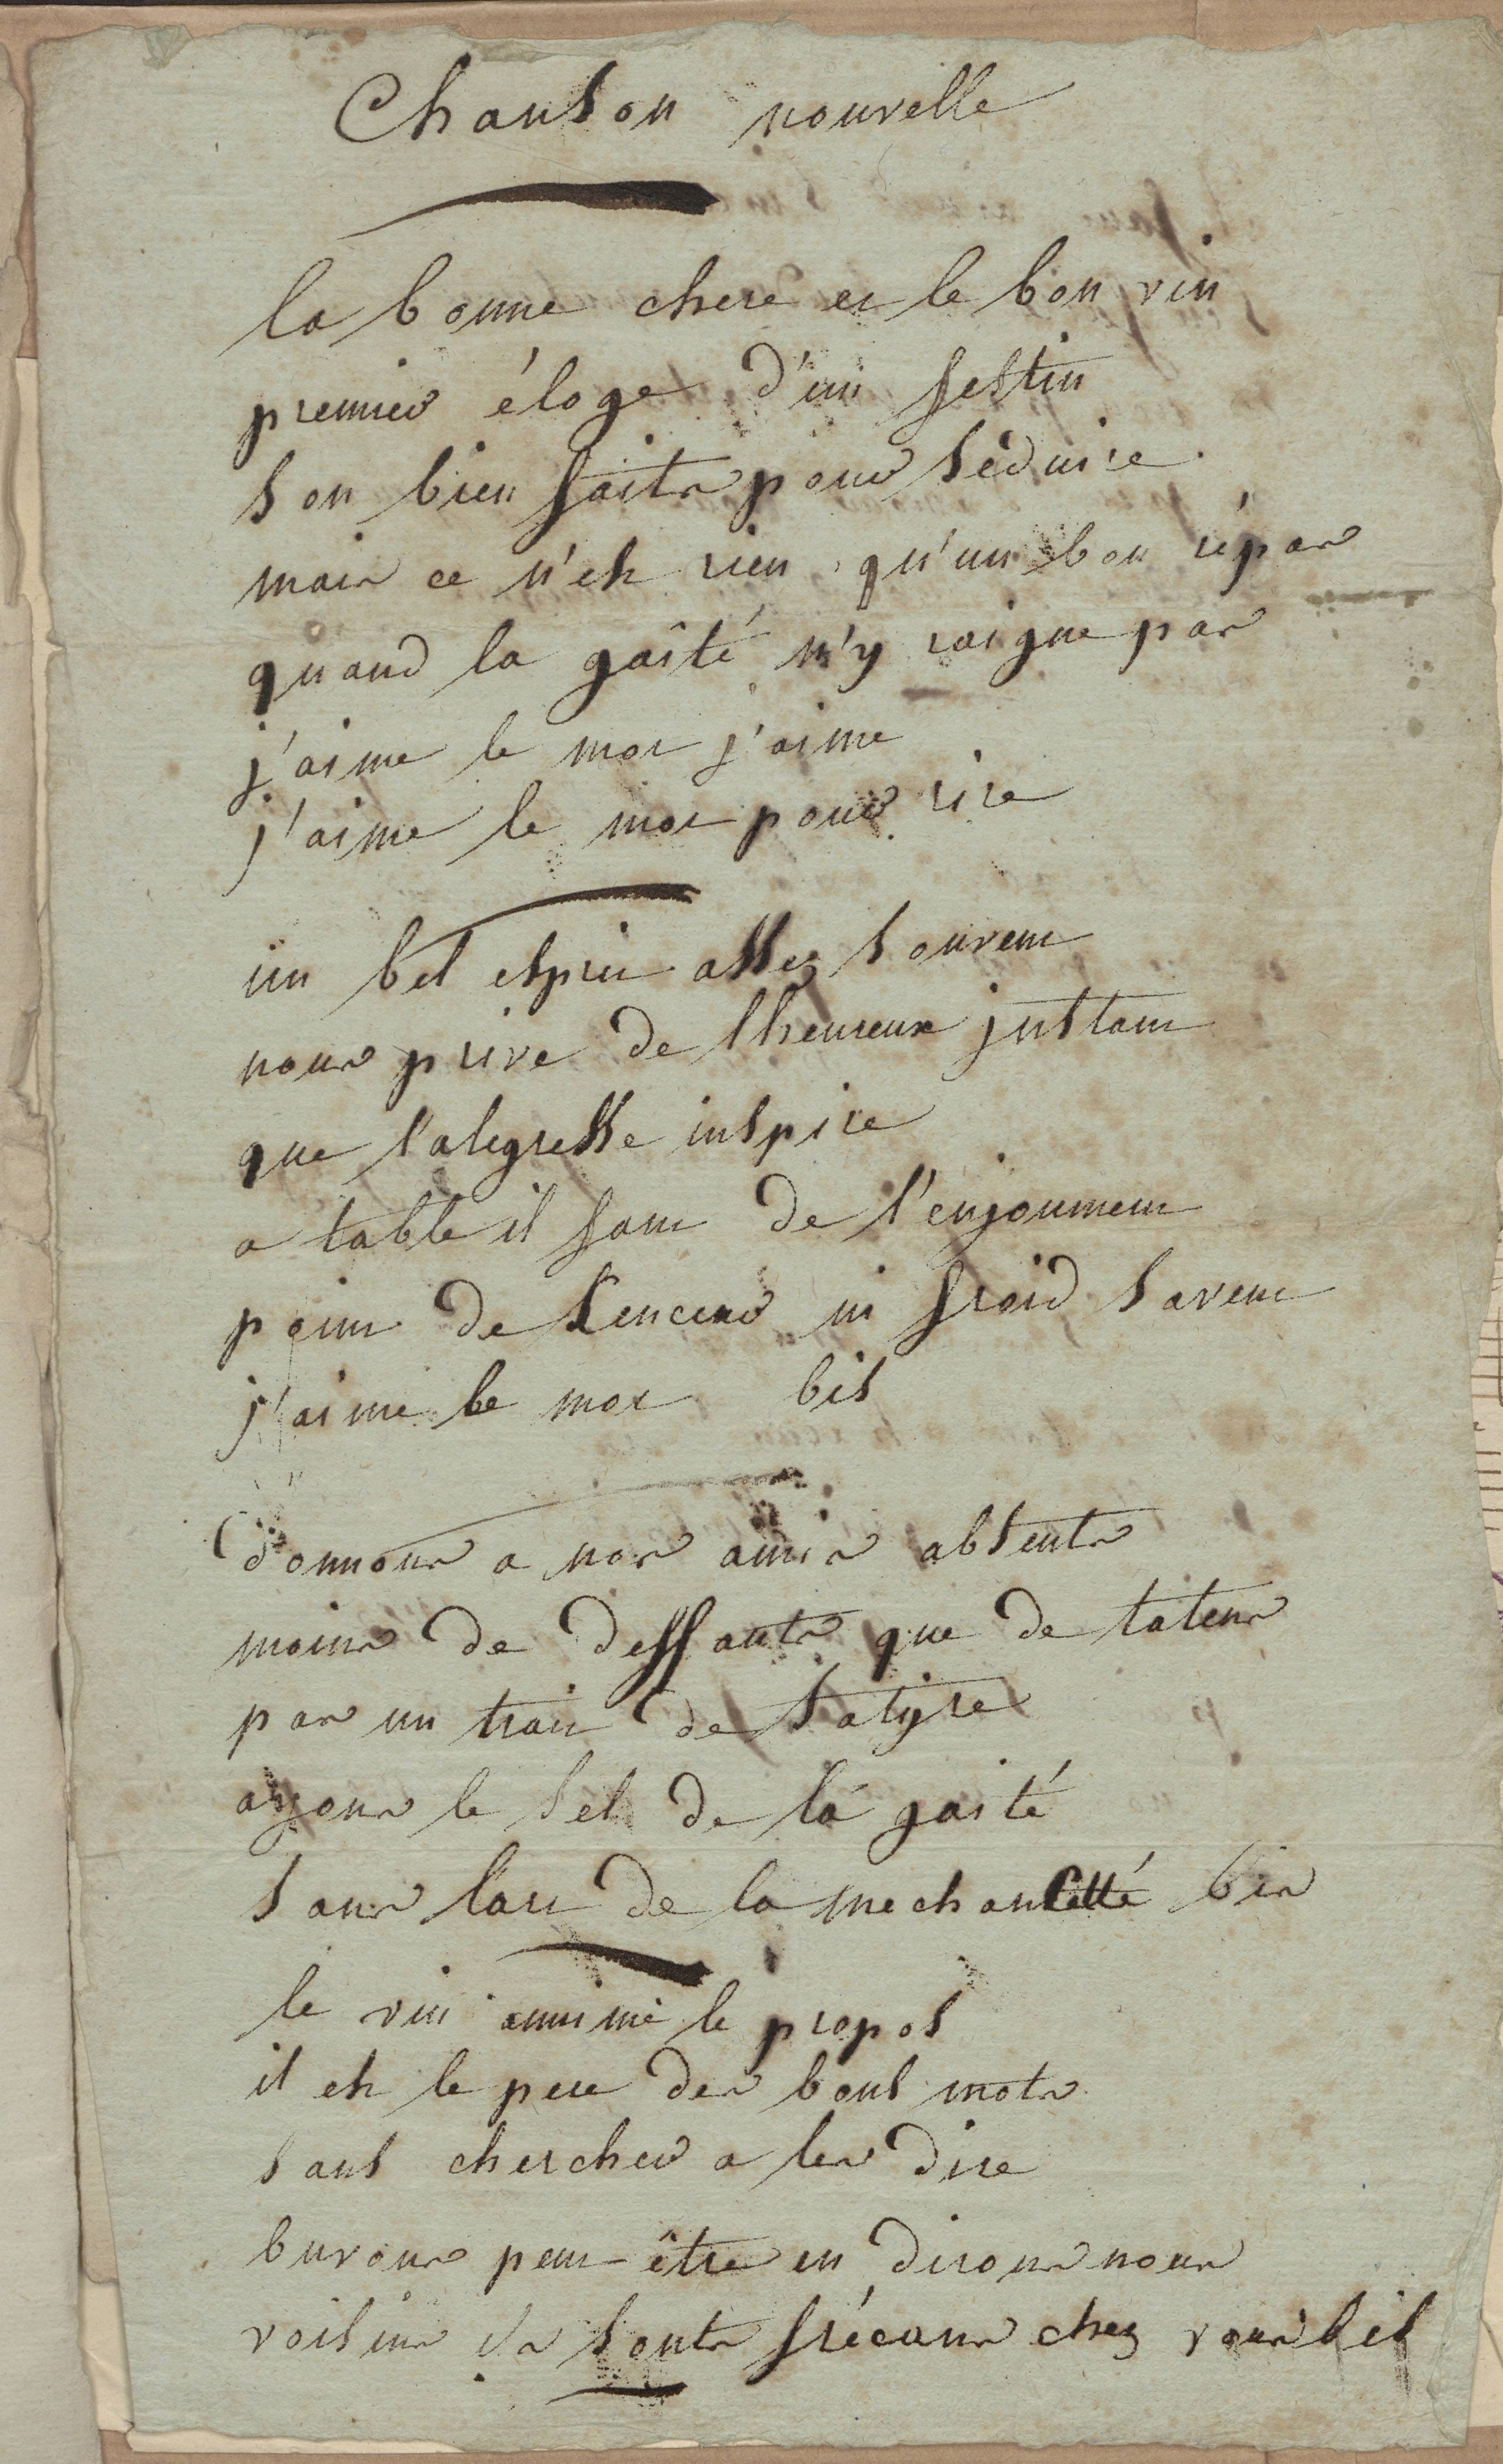 Chanson nouvelle
la bonne chere et le bon vin
premier éloge d'un festin
son bien faits pour séduire
mais ce n'est rien qu'un bon répas
quand la gaîté n'y raigne pas
j'aime le mot j'aime
j'aime le mot pour rire
un bel esprit assez souvent
nous prive de lheureux jnstant
que l'alegresse inspire
a table il faut de l'enjoument
point de senceur ni froid savent
j'aime le mot bis
donnons a nos amis absents
moins de deffauts que de talens
par un trait de satyre
ayons le sel de la gaité
sans lart de la mechancetté bis
le vin anime le propos
il est le pere des bons mots
sans chercher a les dire
buvons peut être en dirons nous
voisins ils sonts frécans chez vous bis